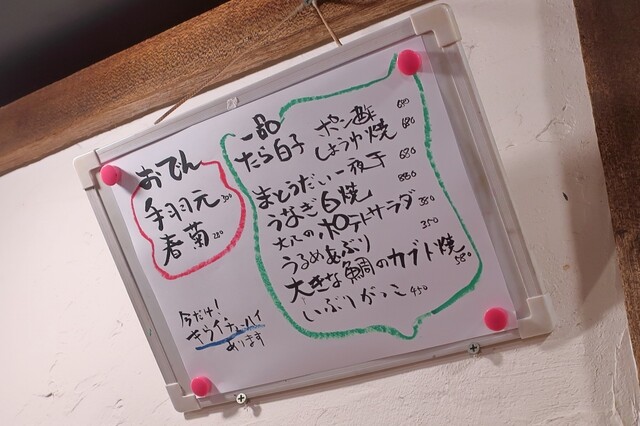 おでん
手羽元 300
春菊 280
一品
たら白子 ポン酢 680
しょうゆ焼 680
まとうだい一夜干 680
うなぎ白焼 880
大人のポテトサラダ 380
うるめあぶり 350
大きな鯛のカブト焼 580
いぶりがっこ 450
今だけ!
キウイチューハイ
あります